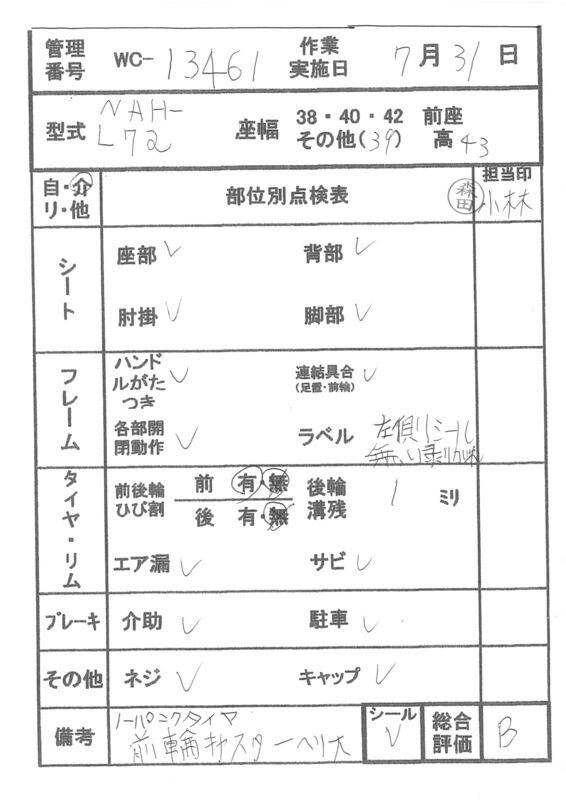 管理番号 WC- 13461 作業実施日 7月31日
型式 NAH-L72 座幅 38・40・42 その他(39) 前座高 43
自・介 リ・他 部位別点検表 担当印 森田 小林
シート 座部 ✓ 背部 ✓
肘掛 ✓ 脚部 ✓
フレーム ハンドルがたつき ✓ 連結具合(足置・前輪) ✓
各部開閉動作 ✓ ラベル 左側シール無い
タイヤ・リム 前後輪ひび割 前 有・無 後 有・無 後輪溝残 1 ミリ
エア漏 ✓ サビ ✓
ブレーキ 介助 ✓ 駐車 ✓
その他 ネジ ✓ キャップ ✓
備考 ノーパンクタイヤ シール ✓ 総合評価 B
前輪キャスターヘリ大